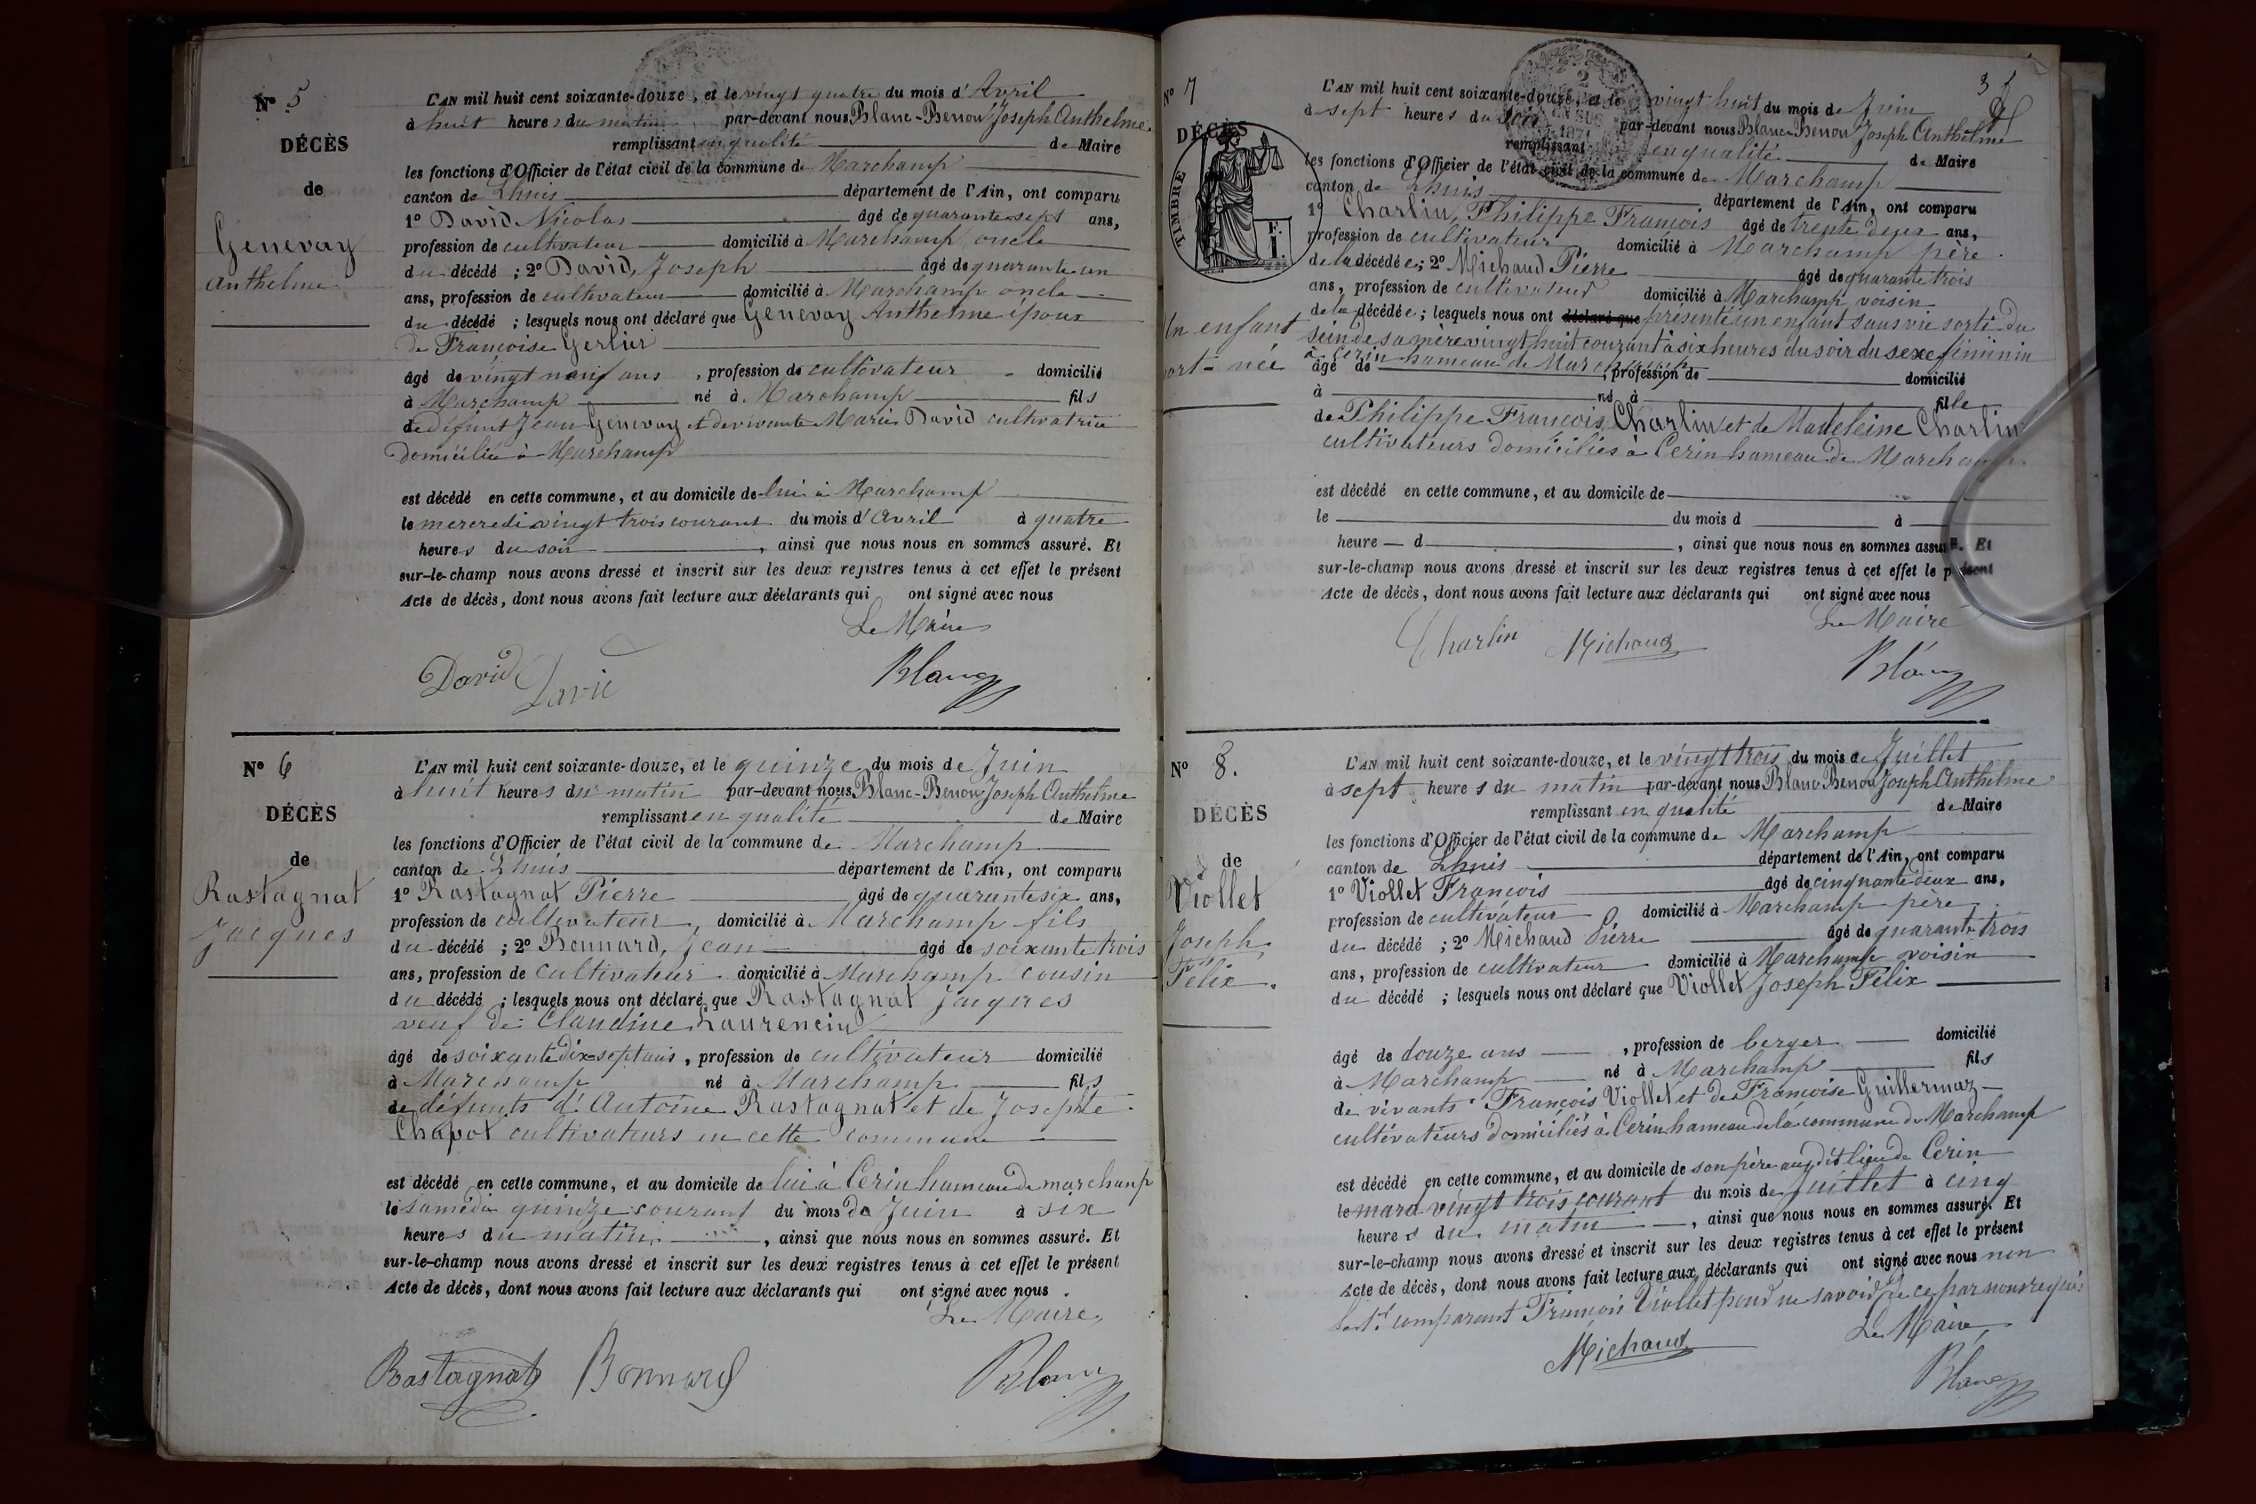 N° 5
DÉCÈS
de
Genevay
Anthelme
L'AN mil huit cent soixante-douze, et le vingt quatre du mois d'Avril
à huit heures du matin par-devant nous Blanc-Benon Joseph Anthelme
remplissant en qualité de Maire
les fonctions d'Officier de l'état civil de la commune de Marchamp
canton de Lhuis département de l'Ain, ont comparu
1° David Nicolas âgé de quarante sept ans,
profession de cultivateur domicilié à Marchamp oncle
du décédé ; 2° David, Joseph âgé de quarante un
ans, profession de cultivateur domicilié à Marchamp oncle
du décédé ; lesquels nous ont déclaré que Genevay Anthelme époux
de Françoise Gerlier
âgé de vingt neuf ans, profession de cultivateur domicilié
à Marchamp né à Marchamp fils
de défunt Jean Genevay et de vivante Marie David cultivatrice
domiciliée à Marchamp
est décédé en cette commune, et au domicile de lui à Marchamp
le mercredi vingt trois courant du mois d'Avril à quatre
heures du soir, ainsi que nous nous en sommes assuré. Et
sur-le-champ nous avons dressé et inscrit sur les deux registres tenus à cet effet le présent
Acte de décès, dont nous avons fait lecture aux déclarants qui ont signé avec nous
Le Maire
David David Blanc
N° 6
DÉCÈS
de
Rastagnat
Jacques
L'AN mil huit cent soixante-douze, et le quinze du mois de Juin
à huit heures du matin par-devant nous Blanc-Benon Joseph Anthelme
remplissant en qualité de Maire
les fonctions d'Officier de l'état civil de la commune de Marchamp
canton de Lhuis département de l'Ain, ont comparu
1° Rastagnat Pierre âgé de quarante six ans,
profession de cultivateur, domicilié à Marchamp fils
du décédé ; 2° Bonnard, Jean âgé de soixante trois
ans, profession de cultivateur domicilié à Marchamp cousin
du décédé ; lesquels nous ont déclaré que Rastagnat Jacques
veuf de Claudine Laurencin
âgé de soixante dix sept ans, profession de cultivateur domicilié
à Marchamp né à Marchamp fils
de défunts d'Antoine Rastagnat et de Josephte
Chapot cultivateurs en cette commune
est décédé en cette commune, et au domicile de lui à Cerin hameau de marchamp
le samedi quinze courant du mois de Juin à six
heures du matin, ainsi que nous nous en sommes assuré. Et
sur-le-champ nous avons dressé et inscrit sur les deux registres tenus à cet effet le présent
Acte de décès, dont nous avons fait lecture aux déclarants qui ont signé avec nous.
Le Maire,
Rastagnat Bonnard Blanc
N° 7
DÉCÈS
TIMBRE
F.
1.
Un enfant
mort-née
L'AN mil huit cent soixante-douze, et le vingt huit du mois de Juin
à sept heures du soir par-devant nous Blanc-Benon Joseph Anthelme
remplissant en qualité de Maire
les fonctions d'Officier de l'état civil de la commune de Marchamp
canton de Lhuis département de l'Ain, ont comparu
1° Charlin, Philippe François âgé de trente deux ans,
profession de cultivateur domicilié à Marchamp père
de la décédée ; 2° Michaud Pierre âgé de quarante trois
ans, profession de cultivateur domicilié à Marchamp, voisin
de la décédée ; lesquels nous ont déclaré que présenté un enfant sans vie sorti du
sein de sa mère vingt huit courant à six heures du soir du sexe féminin
à Cerin hameau de Marchamp
âgé de , profession de domicilié
à né à fille
de Philippe François Charlin et de Madeleine Charlin
cultivateurs domiciliés à Cerin hameau de Marchamp
est décédé en cette commune, et au domicile de
le du mois d à
heure d , ainsi que nous nous en sommes assuré. Et
sur-le-champ nous avons dressé et inscrit sur les deux registres tenus à cet effet le présent
Acte de décès, dont nous avons fait lecture aux déclarants qui ont signé avec nous
Le Maire
Charlin Michaud Blanc
N° 8.
DÉCÈS
de
Viollet
Joseph
Félix.
L'AN mil huit cent soixante-douze, et le vingt trois du mois de Juillet
à sept heures du matin par-devant nous Blanc-Benon Joseph Anthelme
remplissant en qualité de Maire
les fonctions d'Officier de l'état civil de la commune de Marchamp
canton de Lhuis département de l'Ain, ont comparu
1° Viollet François âgé de cinquante deux ans,
profession de cultivateur domicilié à Marchamp père
du décédé ; 2° Michaud Pierre âgé de quarante trois
ans, profession de cultivateur domicilié à Marchamp voisin
du décédé ; lesquels nous ont déclaré que Viollet Joseph Félix
âgé de douze ans, profession de berger domicilié
à Marchamp né à Marchamp fils
de vivants François Viollet et de Françoise Guillermaz
cultivateurs domiciliés à Cerin hameau de la commune de Marchamp
est décédé en cette commune, et au domicile de son père au dit lieu de Cerin
le mardi vingt trois courant du mois de Juillet à cinq
heures du matin, ainsi que nous nous en sommes assuré. Et
sur-le-champ nous avons dressé et inscrit sur les deux registres tenus à cet effet le présent
Acte de décès, dont nous avons fait lecture aux déclarants qui ont signé avec nous non
comparant François Viollet pour ne savoir de ce par nous requis
Michaud Le Maire
Blanc